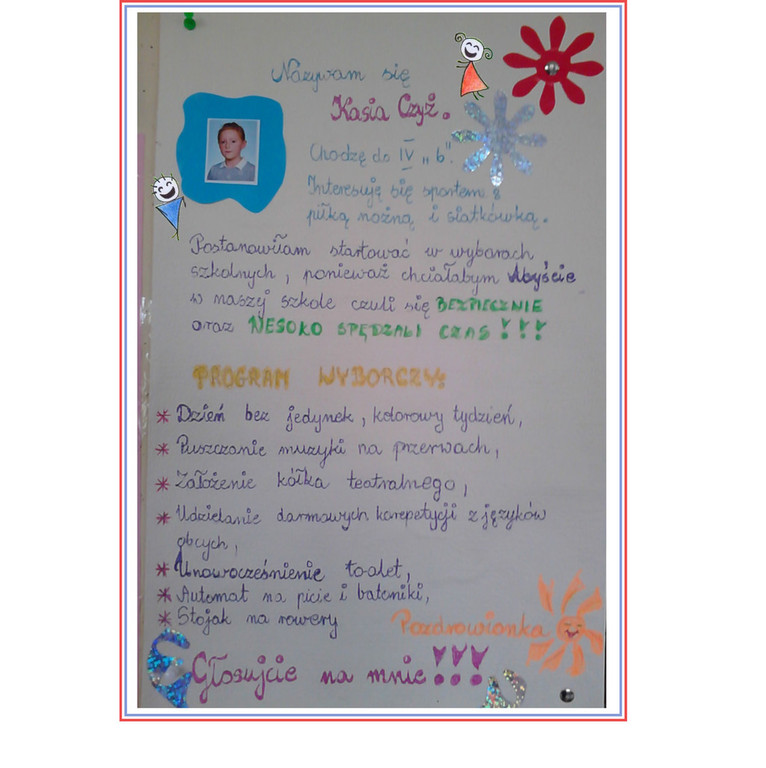 Nazywam się
Kasia Czyż.
Chodzę do IV „b".
Interesuję się sportem :
piłką nożną i siatkówką.
Postanowiłam startować w wyborach
szkolnych, ponieważ chciałabym Abyście
w naszej szkole czuli się BEZPIECZNIE
oraz WESOŁO SPĘDZALI CZAS !!!
PROGRAM WYBORCZY:
* Dzień bez jedynek, kolorowy tydzień,
* Puszczanie muzyki na przerwach,
* Założenie kółka teatralnego,
* Udzielanie darmowych korepetycji z języków
obcych,
* Unowocześnienie toalet,
* Automat na picie i batoniki,
* Stojak na rowery
Pozdrowionka
Głosujcie na mnie !!!